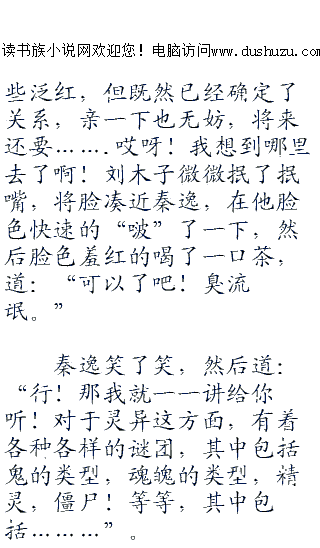 读书族小说网欢迎您！电脑访问www.dushuzu.com
些泛红，但既然已经确定了
关系，亲一下也无妨，将来
还要…….哎呀！我想到哪里
去了啊！刘木子微微抿了抿
嘴，将脸凑近秦逸，在他脸
色快速的“啵”了一下，然
后脸色羞红的喝了一口茶，
道：“可以了吧！臭流
氓。”
秦逸笑了笑，然后道：
“行！那我就一一讲给你
听！对于灵异这方面，有着
各种各样的谜团，其中包括
鬼的类型，魂魄的类型，精
灵，僵尸！等等，其中包
括………”。